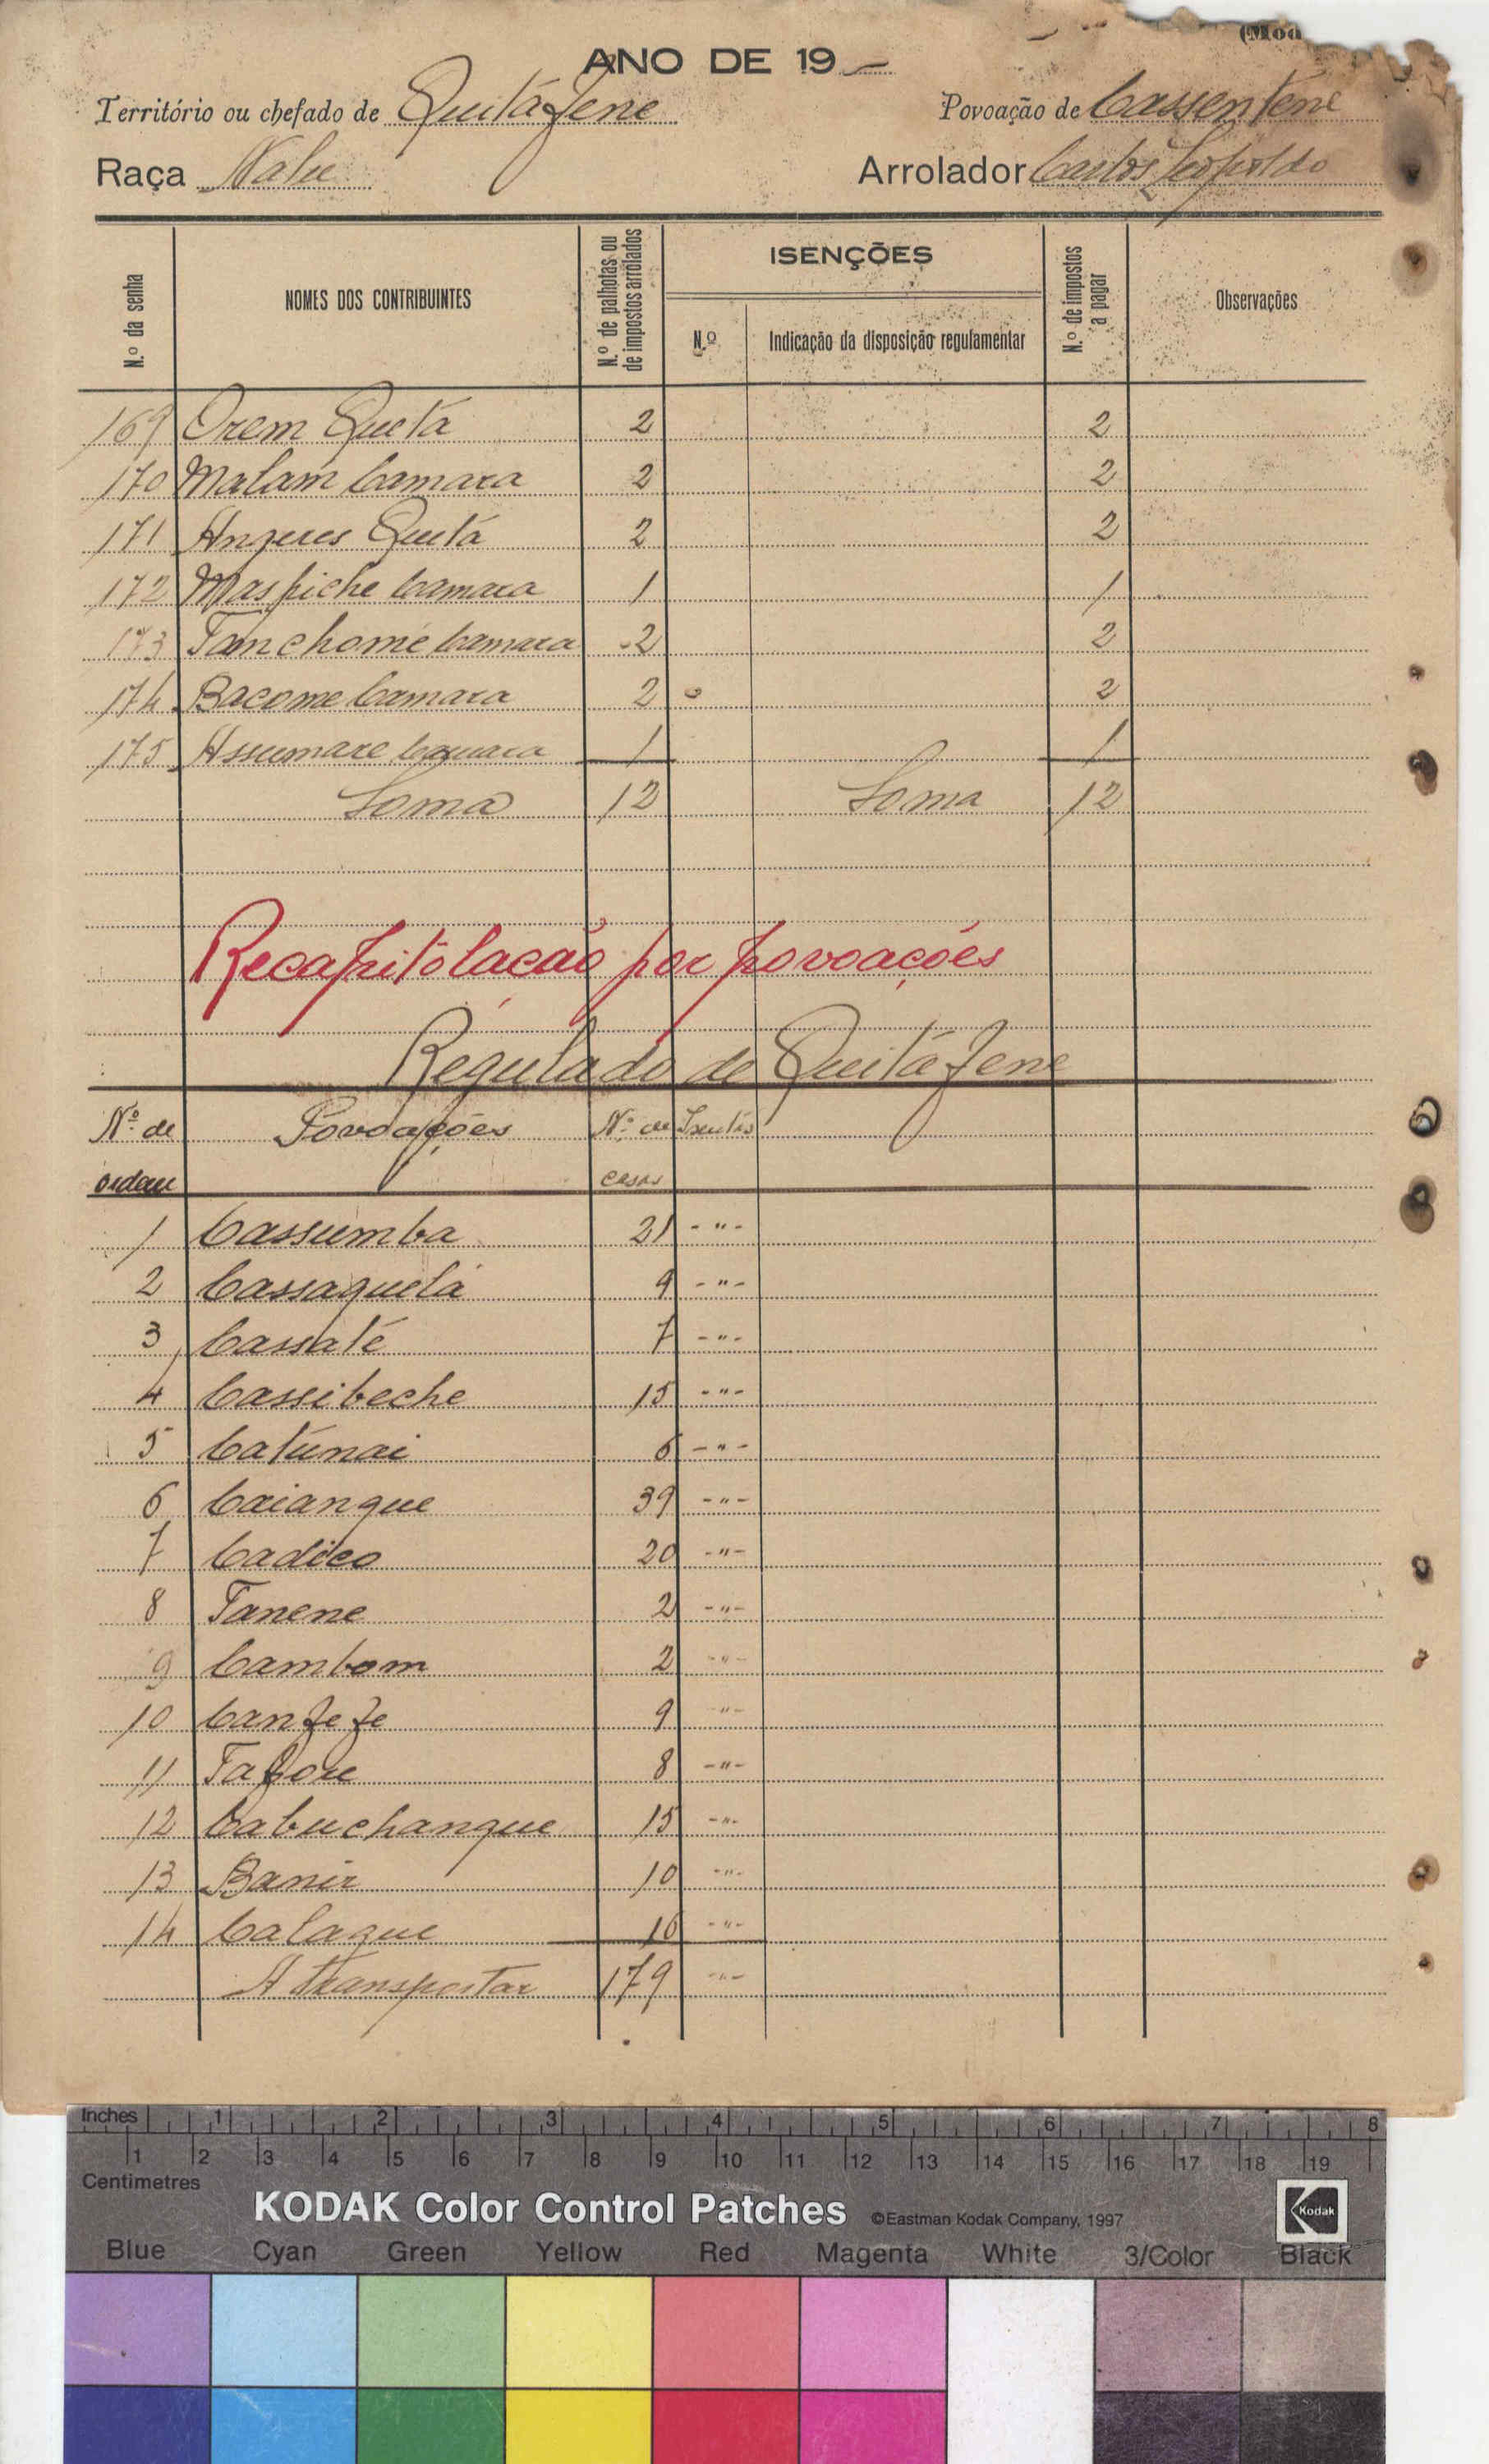 (Mod
ANO DE 19 —
Território ou chefado de Quitáfene Povoação de Cassentene
Raça Nalu Arrolador Carlos Leopoldo
N.º da senha
NOMES DOS CONTRIBUINTES
N.º de palhotas ou de impostos arrolados
ISENÇÕES
N.º
Indicação da disposição regulamentar
N.º de impostos a pagar
Observações
169 Orem Quetá 2 2
170 Malam Camara 2 2
171 Angeres Quetá 2 2
172 Maspiche Camara 1 1
173 Tamchomé Camara 2 2
174 Bacome Camara 2 2
175 Assumare Camara 1 1
Soma 12 Soma 12
Recapitolação por povoações
Regulado de Quitáfene
Nº de Povoações Nº de Isentos
ordem casas
1 Cassumba 21 - " -
2 Cassaquela 9 - " -
3 Cassalé 7 - " -
4 Cassibeche 15 - " -
5 Catúnai 6 - " -
6 Caianque 39 - " -
7 Cadico 20 - " -
8 Tanene 2 - " -
9 Cambom 2 - " -
10 Canfefe 9 - " -
11 Tafore 8 - " -
12 Cabuchanque 15 - " -
13 Banir 10 - " -
14 Calaque 16 - " -
A transportar 179 - " -
Inches 1 2 3 4 5 6 7 8
1 2 3 4 5 6 7 8 9 10 11 12 13 14 15 16 17 18 19
Centimetres
KODAK Color Control Patches ©Eastman Kodak Company, 1997 Kodak
Blue Cyan Green Yellow Red Magenta White 3/Color Black